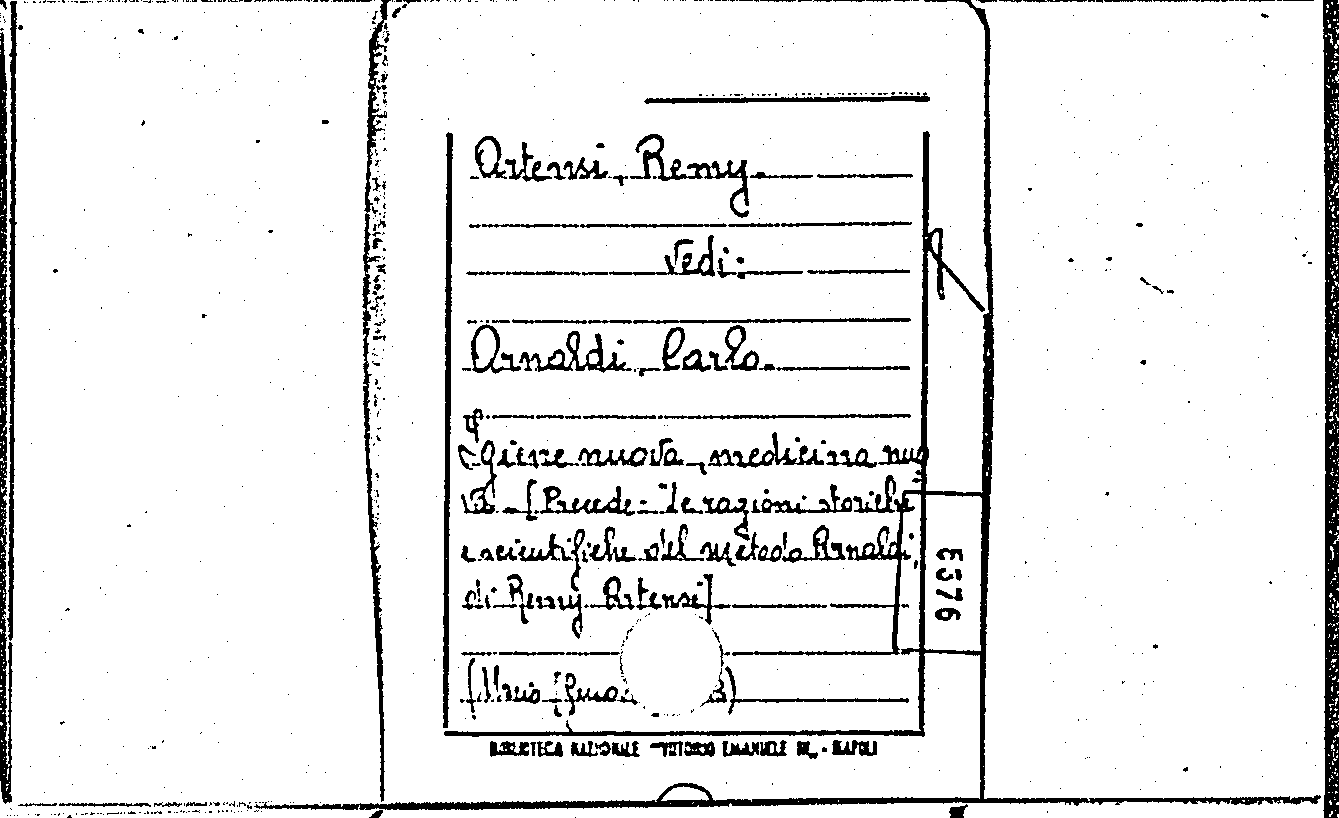 Artensi, Remy.
vedi:
Arnaldi, Carlo.
Igiene nuova, medicina nuo
va. - [Precede: "Le ragioni storiche
e scientifiche del metodo Arnaldi,
di Remy Artensi]
E376
BIBLIOTECA NAZIONALE "VITTORIO EMANUELE III" - NAPOLI